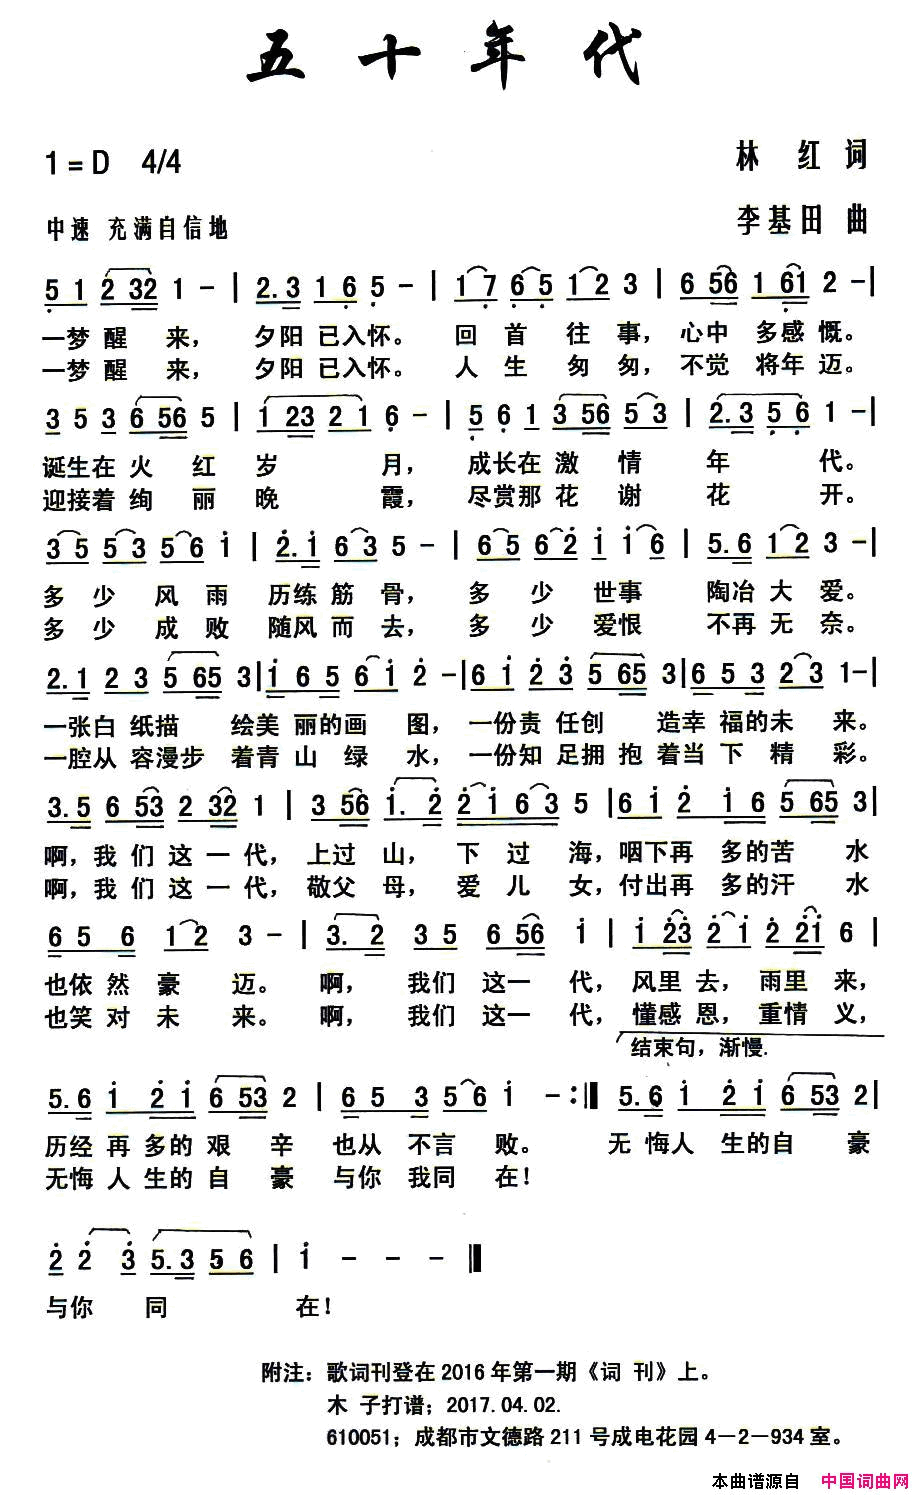 五十年代
1=D 4/4
林 红 词
中速 充满自信地
李基田 曲
5 1 2 32 1 - | 2.3 1 6 5 - | 1 7 6 5 1 2 3 | 6 56 1 61 2 - |
一梦 醒 来， 夕阳 已入怀。 回 首 往 事，心中 多感 慨。
一梦 醒 来， 夕阳 已入怀。 人 生 匆 匆，不觉 将年 迈。
3 5 3 6 56 5 | 1 23 2 1 6 - | 5 6 1 3 56 5 3 | 2.3 5 6 1 - |
诞生在 火 红 岁 月， 成长在 激 情 年 代。
迎接着 绚 丽 晚 霞， 尽赏那 花 谢 花 开。
3 5 5 3 5 6 i | 2.1 6 3 5 - | 6 5 6 2 1 1 6 | 5.6 1 2 3 - |
多 少 风 雨 历练 筋 骨， 多 少 世事 陶冶 大 爱。
多 少 成 败 随风 而 去， 多 少 爱恨 不再 无 奈。
2.1 2 3 5 65 3 | i 6 5 6 i 2 - | 6 i 2 3 5 65 3 | 6 5 3 2 3 1 - |
一张白 纸描 绘美 丽的画 图，一份责 任创 造幸 福的未 来。
一腔从 容漫步 着青 山 绿 水，一份知 足拥 抱 着当 下 精 彩。
3.5 6 53 2 32 1 | 3 56 i. 2 2 i 6 3 5 | 6 i 2 i 6 5 65 3 |
啊，我 们 这 一 代，上过 山， 下 过 海，咽下再 多的苦 水
啊，我 们 这 一 代，敬父 母， 爱 儿 女，付出再 多的汗 水
6 5 6 1 2 3 - | 3. 2 3 5 6 56 i | i 23 2 i 2 2i 6 |
也依 然 豪 迈。 啊， 我们 这一 代，风里 去，雨里 来，
也笑 对 未 来。 啊， 我们 这一 代，懂感 恩，重情 义，
结束句，渐慢.
5.6 i 2 i 6 53 2 | i 6 5 3 5 6 i - :‖ 5.6 i 2 i 6 53 2 |
历经 再 多的 艰 辛 也从 不言 败。 无 悔人 生的自 豪
无悔 人 生的 自 豪 与你 我同 在！
2 2 3 5.3 5 6 | i - - - ‖
与你 同 在！
附注：歌词刊登在2016年第一期《词 刊》上。
木 子打谱；2017.04.02.
610051；成都市文德路211号成电花园4－2－934室。
本曲谱源自 中国词曲网